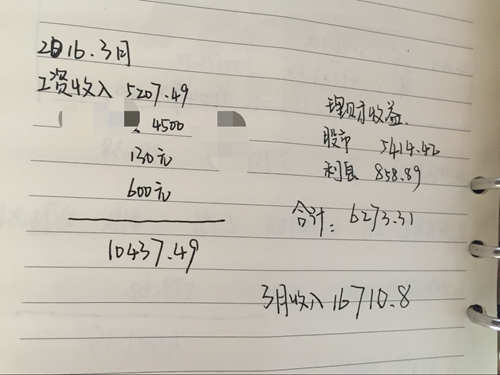 2016.3月
工资收入 5207.49
4500
130元
600元
10437.49
理财收益
股市 5414.42
利息 858.89
合计: 6273.31
3月收入 16710.8